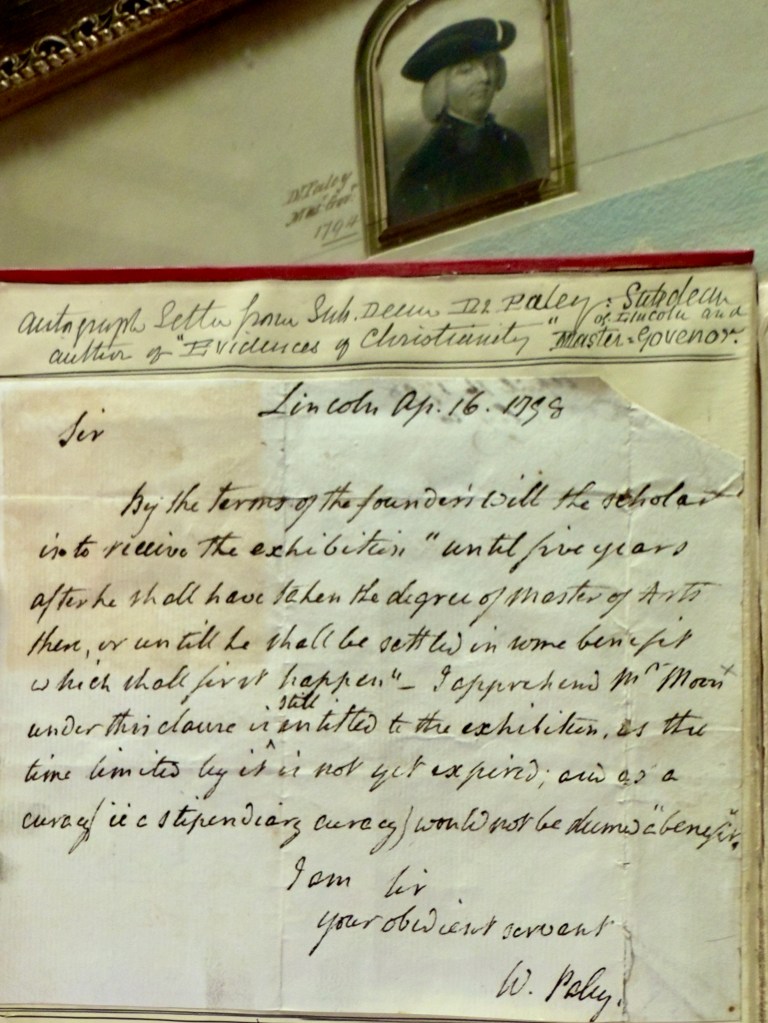 Dr Paley
Mas. Gov.
1794
Autograph Letter from Sub. Dean Dr Paley: Subdean
of Lincoln and
author of "Evidences of Christianity" Master-Govenor.
Lincoln Ap. 16. 1798
Sir
By the terms of the founder's will the scholar
is to receive the exhibition "until five years
after he shall have taken the degree of Master of Arts
then, or untill he shall be settled in some benefit
which shall first happen" - I apprehend Mr Moon
under this clause is still entitled to the exhibition, as the
time limited by it is not yet expired; and as a
curacy (ie a stipendiary curacy) would not be deemed "a benefit".
I am Sir
your obedient servant
W. Paley.